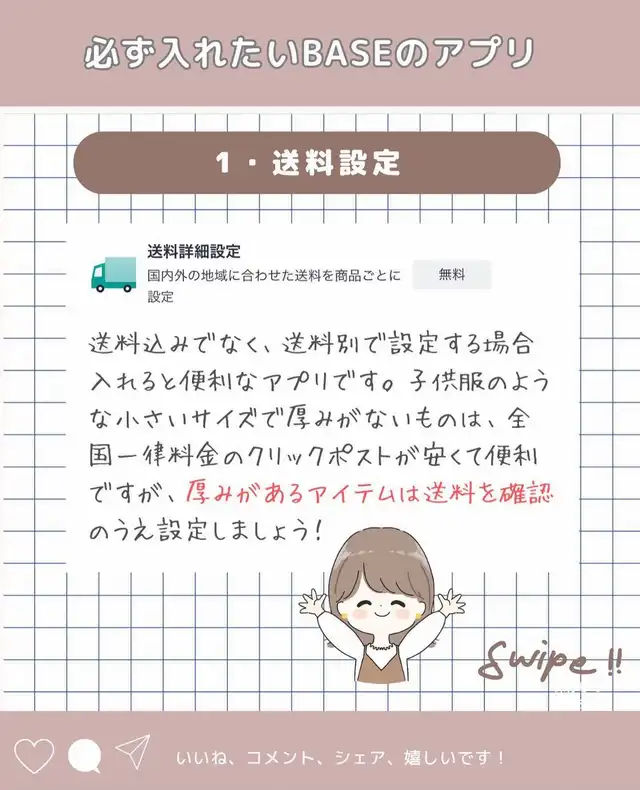 必ず入れたいBASEのアプリ
1・送料設定
送料詳細設定
国内外の地域に合わせた送料を商品ごとに
設定
無料
送料込みでなく、送料別で設定する場合
入れると便利なアプリです。子供服のよう
な小さいサイズで厚みがないものは、全
国一律料金のクリックポストが安くて便利
ですが、厚みがあるアイテムは送料を確認
のうえ設定しましょう!
Swipe!!
いいね、コメント、シェア、嬉しいです!